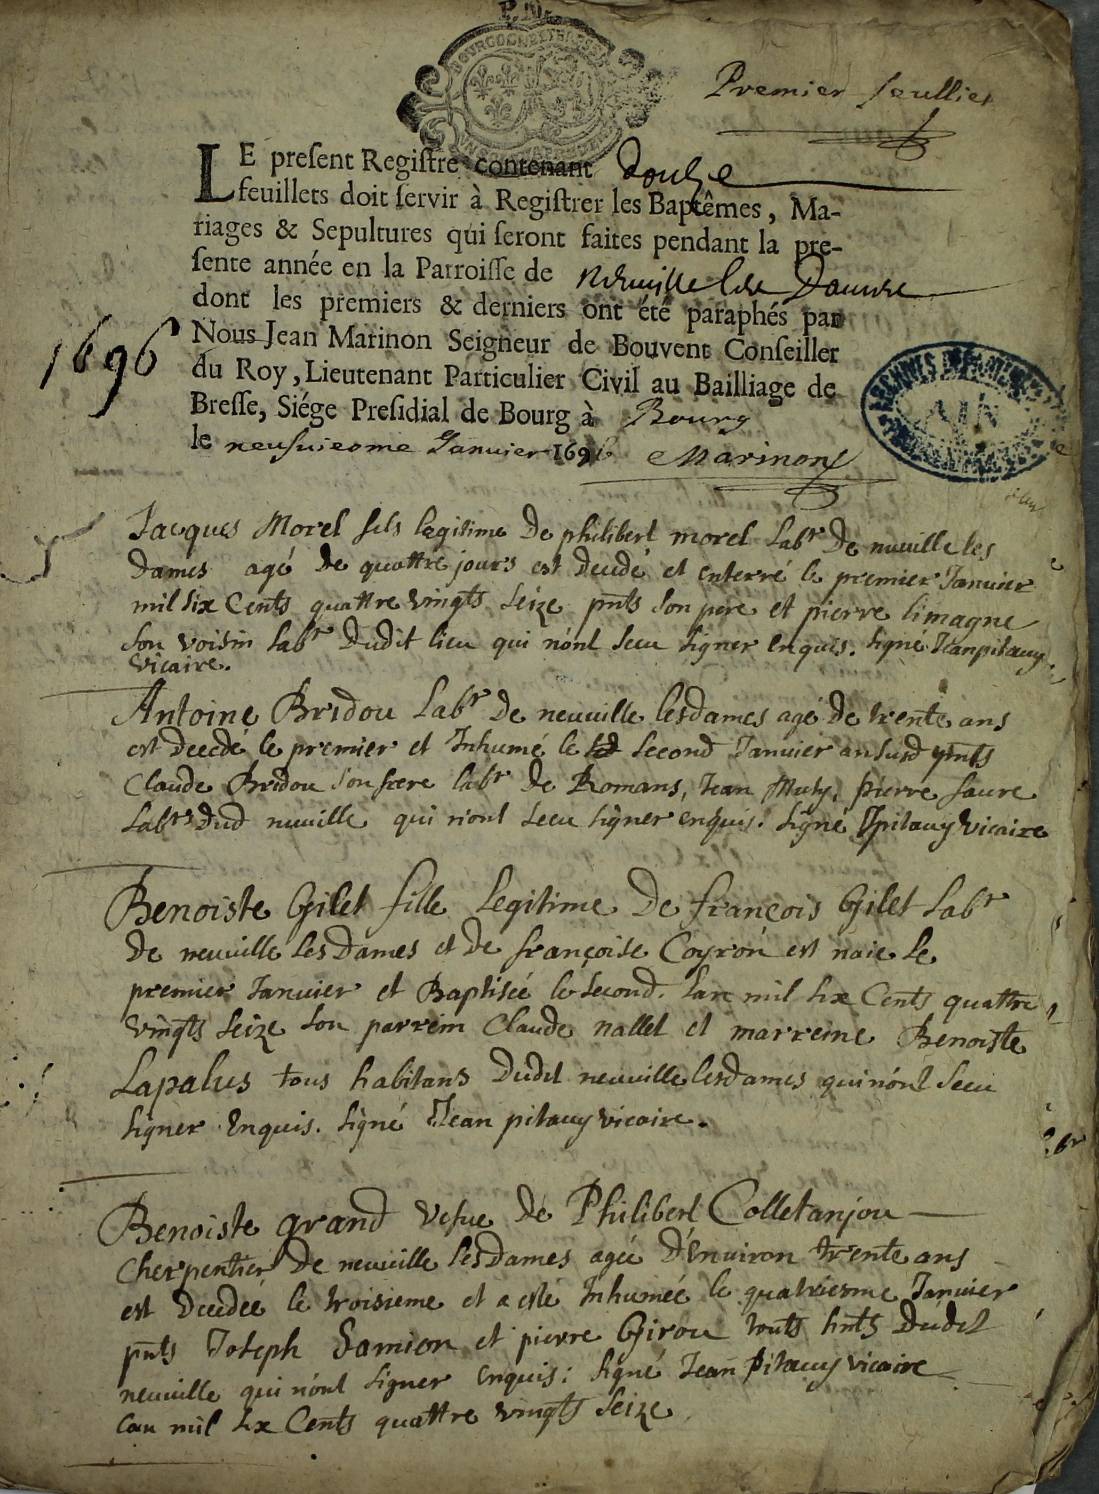 Premier feuillet
LE present Registre contenant Doulze
feuillets doit servir à Registrer les Baptêmes, Ma-
riages & Sepultures qui seront faites pendant la pre-
sente année en la Parroisse de neuville les Dames
dont les premiers & derniers ont été paraphés par
Nous Jean Marinon Seigneur de Bouvent Conseiller
du Roy, Lieutenant Particulier Civil au Bailliage de
Bresse, Siége Presidial de Bourg à Bourg
le neufviesme Janvier 1696 Marinon
1696
ARCHIVES DEPARTEMENTALES
AIN
Jacques Morel fils legitime De philibert morel Labr De neuville les
Dames agé De quattre jours est Decedé et Enterré le premier Janvier
mil six Cents quattre vingts seize pnts son pere et pierre limagne
son voisin labr Dudit lieu qui n'ont sceu signer enquis. signé Jean pitauy
vicaire.
Antoine Bridou Labr De neuville lesdames agé De trente ans
est decedé le premier et Inhumé le second Janvier an susd pnts
Claude Bridou son frere labr de Romans, Jean pierre faure
Labrs Dud neuville qui n'ont sceu signer enquis. signé Jpitauy vicaire
Benoiste Gilet fille Legitime De françois Gilet Labr
De neuville les Dames et de françoise Coyron est naie le
premier Janvier et Baptisée le second. lan mil six Cents quattre
vingts seize son parrein Claude nallet et marreine Benoiste
Lapalus tous habitans Dudit neuville lesdames qui n'ont sceu
signer Enquis. signé Jean pitauy vicaire.
Benoiste grand vefue de Philibert Colletanjou
Cherpentier De neuville les Dames agée D'Environ trente ans
est Decedée le troisieme et a esté Inhumée le quatriesme Janvier
pnts Joseph Samion et pierre Girou touts hnts Dudit
neuville qui n'ont signer enquis: signé Jean Pitauy vicaire
lan mil six Cents quattre vingts seize